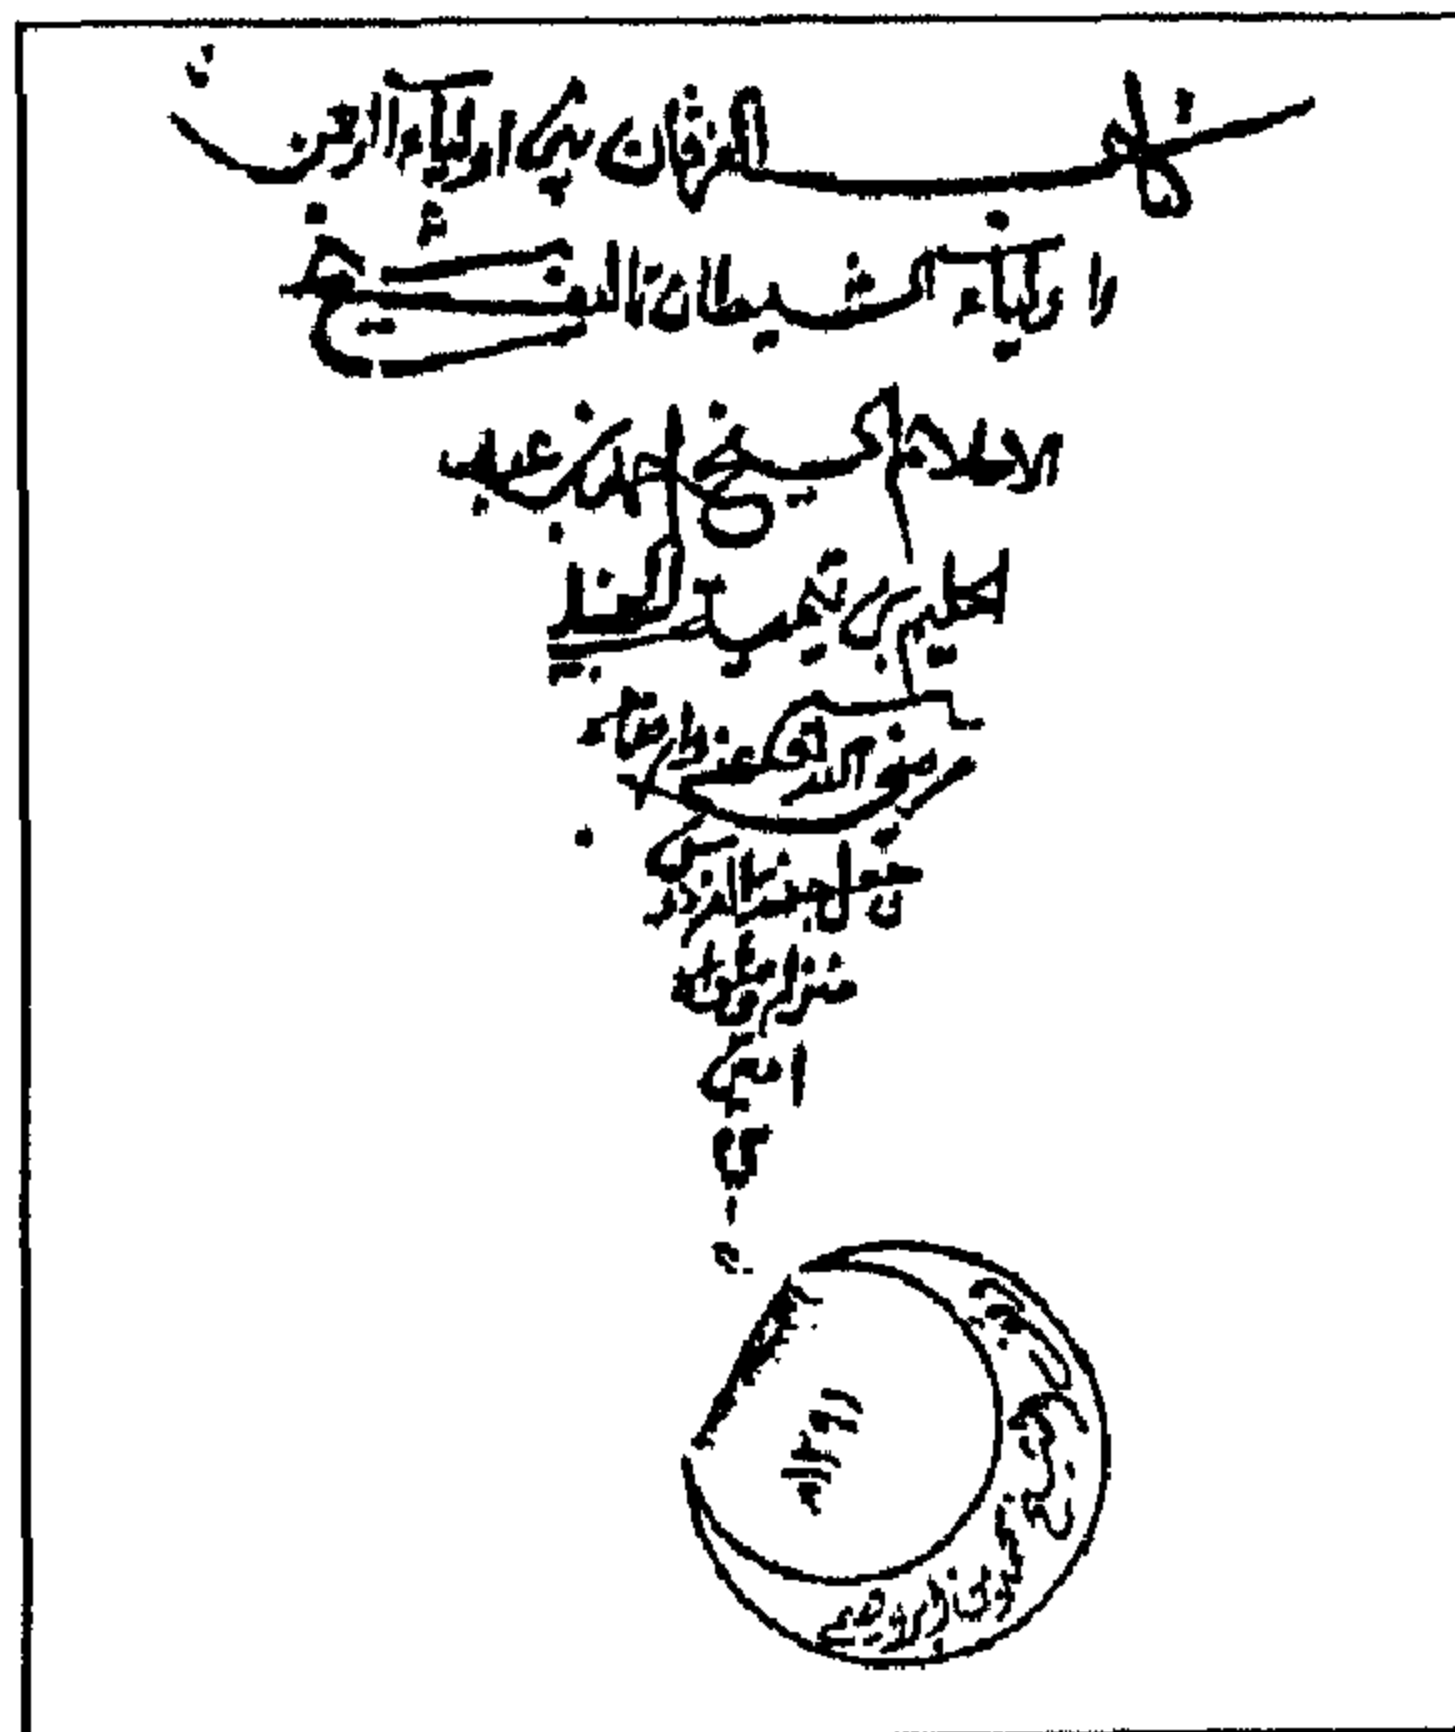 كتاب الفرقان بين اولياء الرحمن
واولياء الشيطان تاليف شيخ
الاسلام الشيخ احمد بن عبد
الحليم بن تيمية الحنبلي
رضي الله تعالى عنه وارضاه
وجعل جنة الفردوس
منزله ومثواه
امين